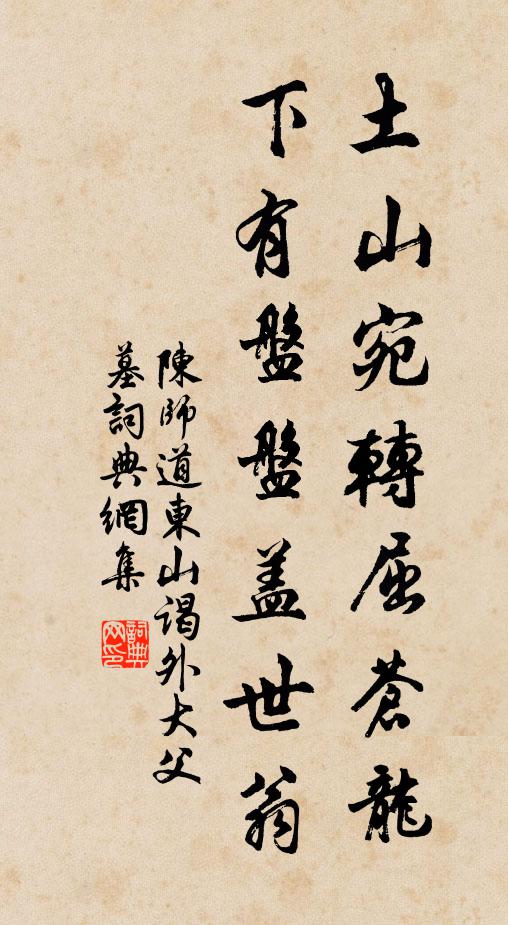 土山宛轉屈蒼龍
下有盤盤蓋世翁
陳師道東山謁外大父
墓詞典網集
詞典網印